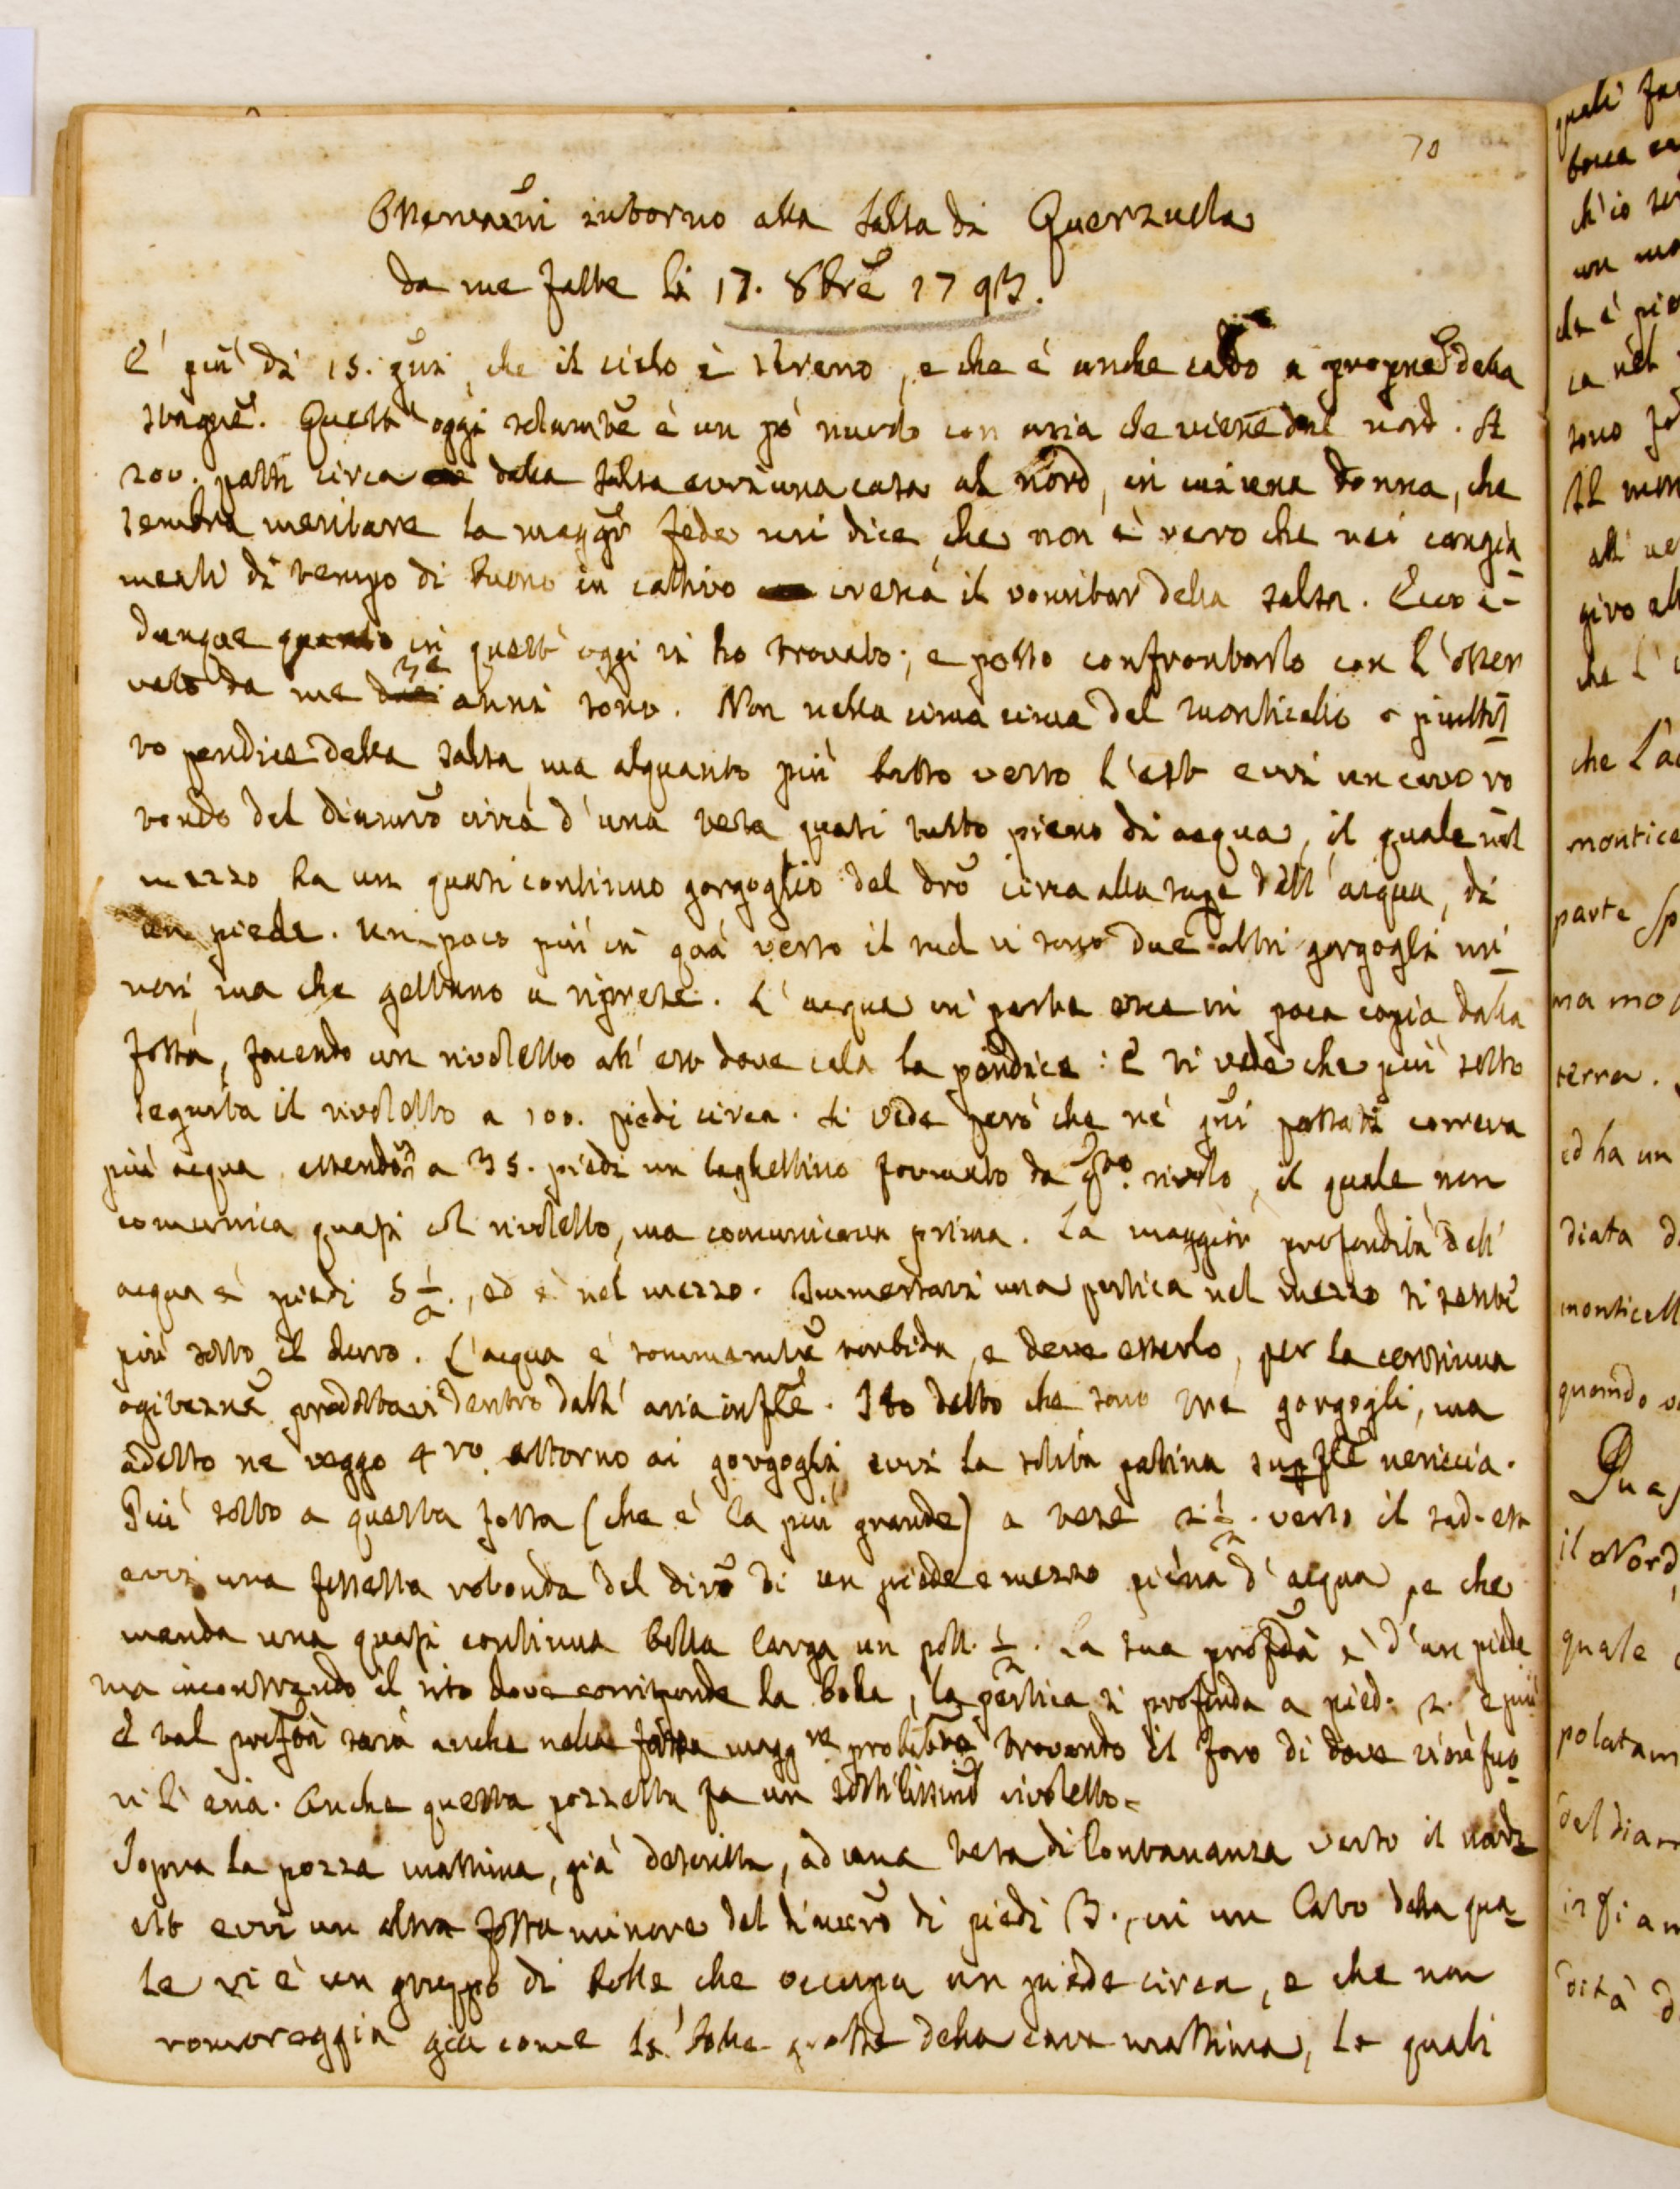 70
Osservaz̃ni intorno alla Salsa di Querzuola
da me fatte li 17. 8bre 1793.
È più di 15. gni, che il cielo è sereno, e che è anche caldo a proprne della
stagne. Quest'oggi solamte è un pò nuvolo con aria che viene dal nord. A
200. passi circa dalla salsa evvi una casa al nord, in cui una donna, che
sembra meritare la maggr fede mi dice, che non è vero che nei cangia
menti di tempo di buono in cattivo cresca il vomitar della salsa. Ecco i-
dunque quanto in quest'oggi vi ho trovato; e posso confrontarlo con l'osser
vato da me tre anni sono. Non nella cima cima del monticello o piuttos
to pendice della salsa, ma alquanto più basso verso l'est evvi un cavo ro
tondo del diametro circa d'una tesa quasi tutto pieno di acqua, il quale nel
mezzo ha un quasi continuo gorgoglio del dro circa alla supe dell'acqua, di
un piede. Un poco più in quà verso il sud vi sono due altri gorgogli mi
nori, ma che gettano a riprese. L'acqua in parte esce in poca copia dalla
fossa, facendo un rivoletto all'est dove cala la pendice: e si vede che più sotto
seguita il rivoletto a 100. piedi circa. Si vede però che nè gni passati correva
più acqua, essendovi a 35. piedi un laghettino formato da qto. rivolo, il quale non
comunica quasi col rivoletto, ma comunicava prima. La maggior profondità dell'
acqua è piedi 5 1/2., ed è nel mezzo. Immersavi una pertica nel mezzo si sente
più sotto il duro. L'acqua è sommamte torbida, e deve esserlo, per la continua
agitazne prodottavi dentro dall'aria infle. Ho detto che sono tre gorgogli, ma
adesso ne veggo 4ro. attorno ai gorgogli evvi la solita patina supfle nericcia.
Più sotto a questa fossa (che è la più grande) a tese 2 1/2. verso il sud-est
evvi una fossetta rotonda del diro di un piede e mezzo piena d'acqua, e che
manda una quasi continua bolla larga un poll. 1/2. La sua profdà è d'un piede
ma incontrando il sito dove corrisponde la bolla, la pertica si profonda a pied. 2. e più
e tal profdà sarà anche nella fossa maggre probabte trovando il foro di dove vien fuo
ri l'aria. Anche questa pozzetta fa un sottilissimo rivoletto.
Sopra la pozza massima, già descritta, ad una tesa di lontananza verso il nord
est evvi un altra fossa minore del diametro di piedi 3., in un lato della qua
le vi è un gruppo di bolle, che occupa un piede circa, e che non
romoreggia già come le bolle grosse della cava massima, le quali
monticell
Quas
il Nord,
quale
terra.
ed ha un
diata d
parte sp
che l'ac
montice